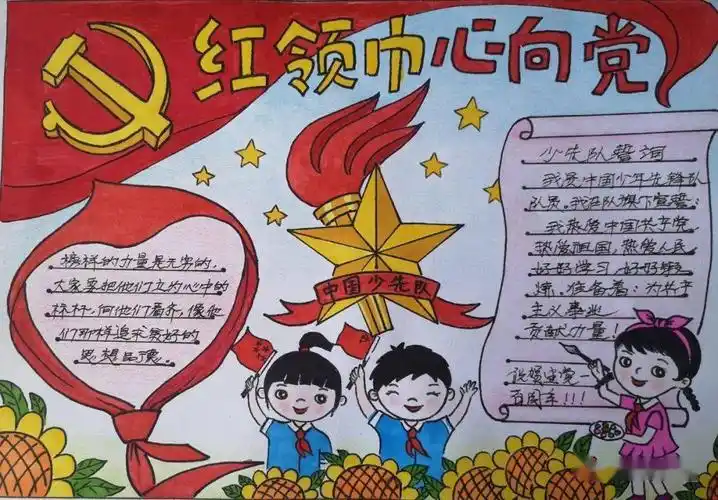 红领巾心向党
中国少先队
榜样的力量是无穷的,
大家要把他们立为心中的
标杆,向他们看齐,像他
们那样追求美好的
思想品德.
少先队誓词
我是中国少年先锋队
队员。我在队旗下宣誓:
我热爱中国共产党,
热爱祖国,热爱人民,
好好学习,好好锻
炼,准备着:为共产
主义事业
贡献力量!
祝贺建党一
百周年!!!